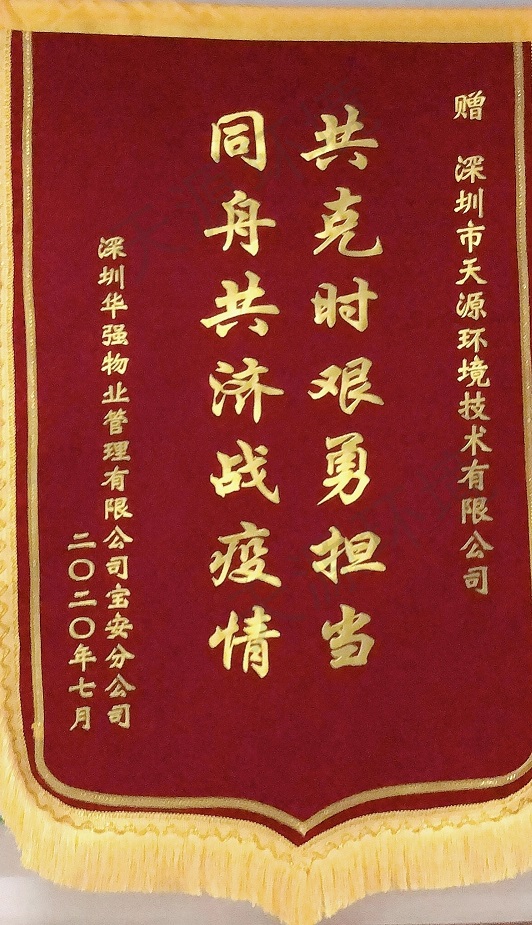 赠 深圳市天源环境技术有限公司
共克时艰勇担当
同舟共济战疫情
深圳华强物业管理有限公司宝安分公司
二〇二〇年七月